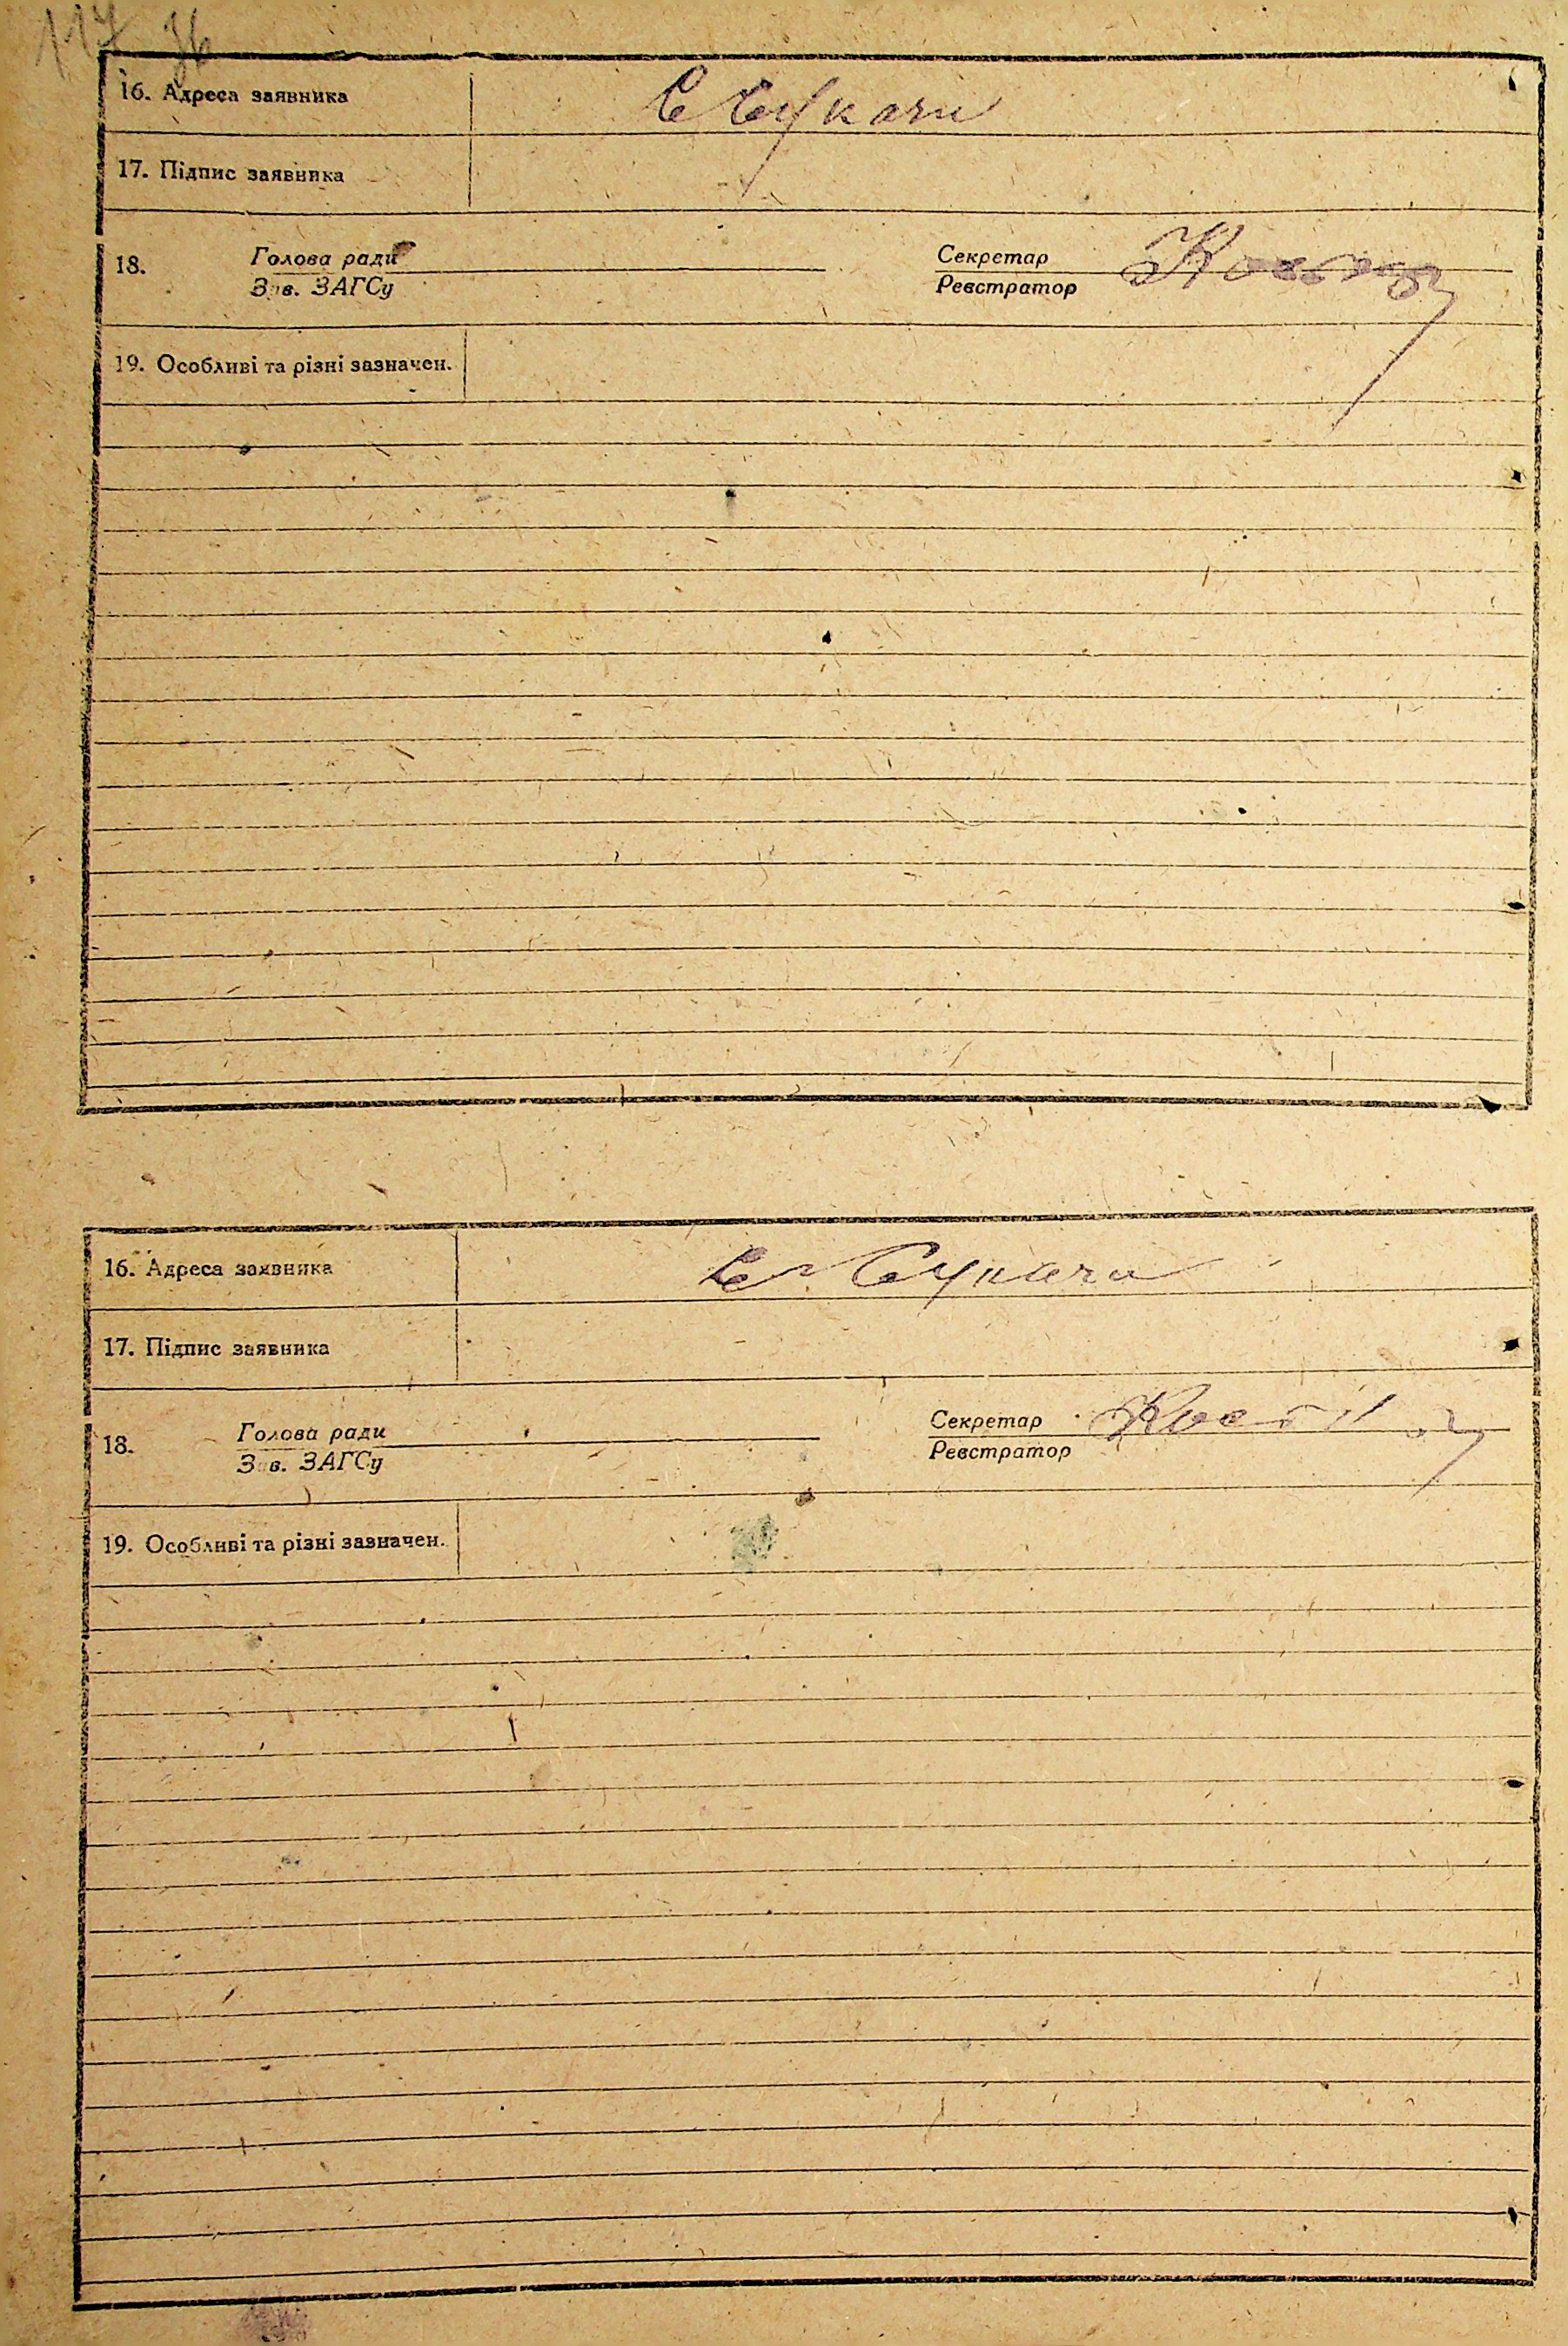 117 зв
16. Адреса заявника С Сукачи
17. Підпис заявника
18. Голова ради Секретар
Зав. ЗАГСу Реєстратор
19. Особливі та різні зазначен.
16. Адреса заявника С. Сукачи
17. Підпис заявника
18. Голова ради Секретар
Зав. ЗАГСу Реєстратор
19. Особливі та різні зазначен.